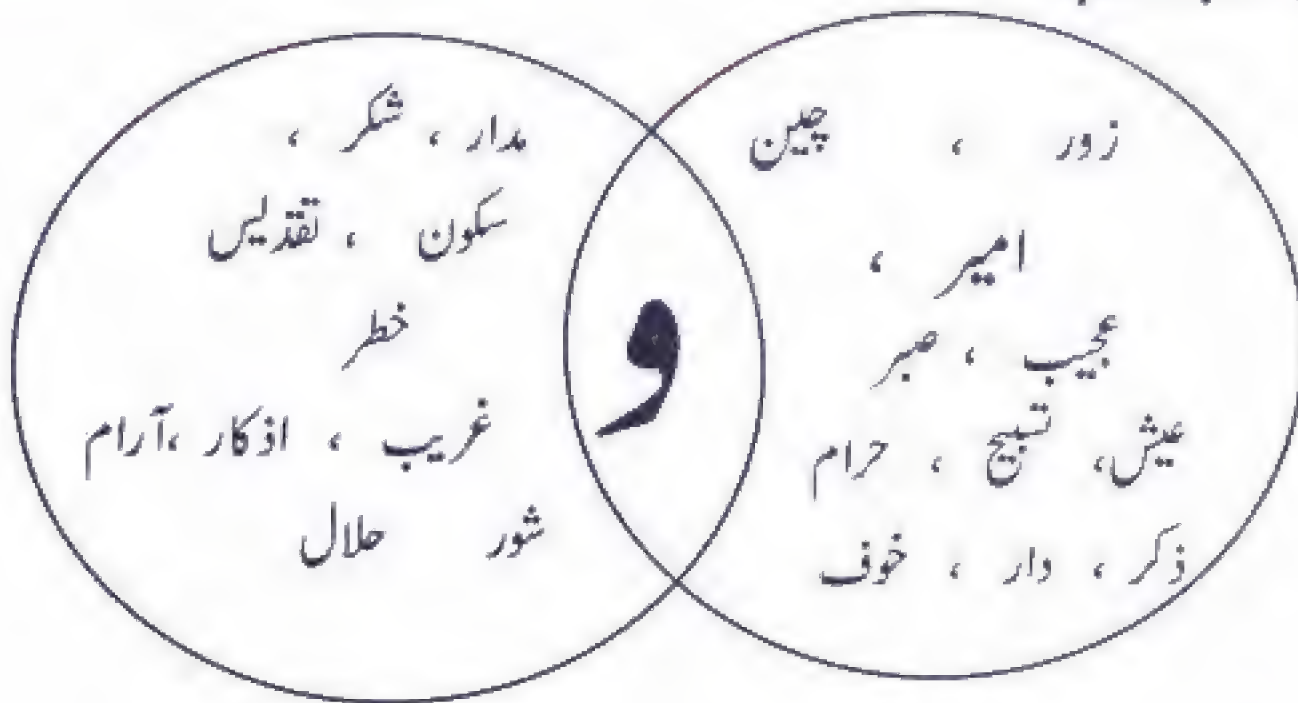 زور ، چین
امیر ،
عجیب ، صبر
عیش، تسبیح ، حرام
ذکر ، دار ، خوف
و
مدار ، شکر ،
سکون ، تقدیس
خطر
غریب ، اذکار ،آرام
شور حلال